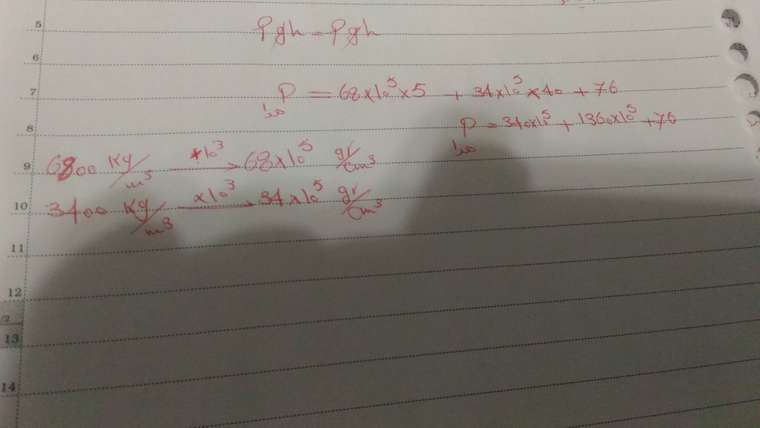 ρgh = ρgh
P = 68×10^5×5 + 34×10^5×40 + 76
P = 340×10^5 + 1360×10^5 + 76
6800 Kg/m³ ×10³ → 68×10^5 gr/cm³
3400 Kg/m³ ×10³ → 34×10^5 gr/cm³
5
6
7
8
9
10
11
12
13
14